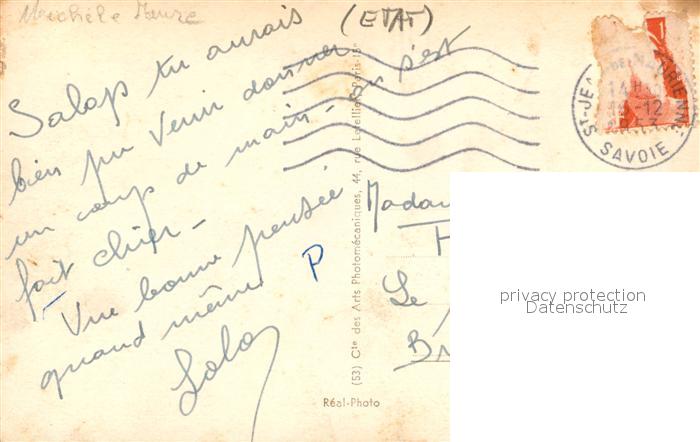 Michèle Meure
(ETAT)
Salop tu aurais
bien pu venir donner
un coup de main - on s'est
fait chier -
Une bonne pensée
quand même
Lolo
P
(53) Cie des Arts Photomécaniques, 44, rue Letellier, Paris-15e
Réal-Photo
ST-JE
MAURIENNE
14H
-12
SAVOIE
Madam
Le
privacy protection
Datenschutz